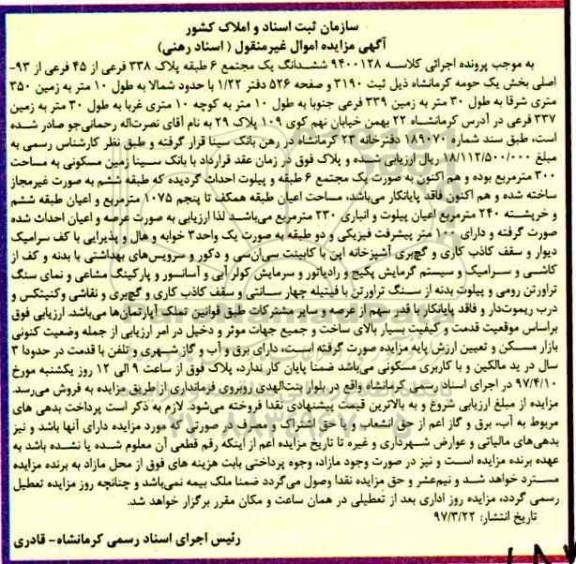 سازمان ثبت اسناد و املاک کشور
آگهی مزایده اموال غیرمنقول ( اسناد رهنی)
به موجب پرونده اجرائی کلاسه ۹۴۰۰۱۲۸ ششدانگ یک مجتمع ۶ طبقه پلاک ۳۳۸ فرعی از ۴۵ فرعی از ۹۳-
اصلی بخش یک حومه کرمانشاه ذیل ثبت ۳۱۹۰ و صفحه ۵۲۶ دفتر ۱/۲۲ با حدود شمالا به طول ۱۰ متر به زمین ۳۵۰
متری شرقا به طول ۳۰ متر به زمین ۳۳۹ فرعی جنوبا به طول ۱۰ متر به کوچه ۱۰ متری غربا به طول ۳۰ متر به زمین
۳۳۷ فرعی در آدرس کرمانشاه ۲۲ بهمن خیابان نهم کوی ۱۰۹ پلاک ۲۹ به نام آقای نصرت‌اله رحمانی‌جو صادر شده
است، طبق سند شماره ۱۸۹۰۷۰ دفترخانه ۲۳ کرمانشاه در رهن بانک سینا قرار گرفته و طبق نظر کارشناس رسمی به
مبلغ ۱۸/۱۱۲/۵۰۰/۰۰۰ ریال ارزیابی شده و پلاک فوق در زمان عقد قرارداد با بانک سینا زمین مسکونی به مساحت
۳۰۰ مترمربع بوده و هم اکنون به صورت یک مجتمع ۶ طبقه و پیلوت احداث گردیده که طبقه ششم به صورت غیرمجاز
ساخته شده و هم اکنون فاقد پایانکار می‌باشد، مساحت اعیان طبقه همکف تا پنجم ۱۰۷۵ مترمربع و اعیان طبقه ششم
و خرپشته ۲۴۰ مترمربع اعیان پیلوت و انباری ۲۳۰ مترمربع می‌باشد لذا ارزیابی به صورت عرصه و اعیان احداث شده
صورت گرفته و دارای ۱۰۰ متر پیشرفت فیزیکی و دو طبقه به صورت یک واحد ۳ خوابه و هال و پذیرایی با کف سرامیک
دیوار و سقف کاذب کاری و گچ‌بری آشپزخانه اپن با کابینت سی‌ان‌سی و دکور و سرویس‌های بهداشتی با بدنه و کف از
کاشی و سرامیک و سیستم گرمایش پکیج و رادیاتور و سرمایش کولر آبی و آسانسور و پارکینگ مشاعی و نمای سنگ
تراورتن رومی و پیلوت بدنه از سنگ تراورتن با فیتیله چهار سانتی و سقف کاذب کاری و گچ‌بری و نقاشی وکنیتکس و
درب ریموت‌دار و فاقد پایانکار با قدر سهم از عرصه و سایر مشترکات طبق قوانین تملک آپارتمان‌ها می‌باشد. ارزیابی فوق
براساس موقعیت قدمت و کیفیت بسیار بالای ساخت و جمیع جهات موثر و دخیل در امر ارزیابی از جمله وضعیت کنونی
بازار مسکن و تعیین ارزش پایه مزایده صورت گرفته است، دارای برق و آب و گاز شهری و تلفن با قدمت در حدودا ۳
سال در ید مالکین و با کاربری مسکونی می‌باشد ضمنا پایان کار ندارد، پلاک فوق از ساعت ۹ الی ۱۲ روز یکشنبه مورخ
۹۷/۴/۱۰ در اجرای اسناد رسمی کرمانشاه واقع در بلوار بنت‌الهدی روبروی فرمانداری از طریق مزایده به فروش می‌رسد.
مزایده از مبلغ ارزیابی شروع و به بالاترین قیمت پیشنهادی نقدا فروخته می‌شود. لازم به ذکر است پرداخت بدهی های
مربوط به آب، برق و گاز اعم از حق انشعاب و یا حق اشتراک و مصرف در صورتی که مورد مزایده دارای آنها باشد و نیز
بدهی‌های مالیاتی و عوارض شهرداری و غیره تا تاریخ مزایده اعم از اینکه رقم قطعی آن معلوم شده یا نشده باشد به
عهده برنده مزایده است و نیز در صورت وجود مازاد، وجوه پرداختی بابت هزینه های فوق از محل مازاد به برنده مزایده
مسترد خواهد شد و نیم‌عشر و حق مزایده نقدا وصول می‌گردد ضمنا ملک بیمه نمی‌باشد و چنانچه روز مزایده تعطیل
رسمی گردد، مزایده روز اداری بعد از تعطیلی در همان ساعت و مکان مقرر برگزار خواهد شد.
تاریخ انتشار: ۹۷/۳/۲۲
رئیس اجرای اسناد رسمی کرمانشاه- قادری